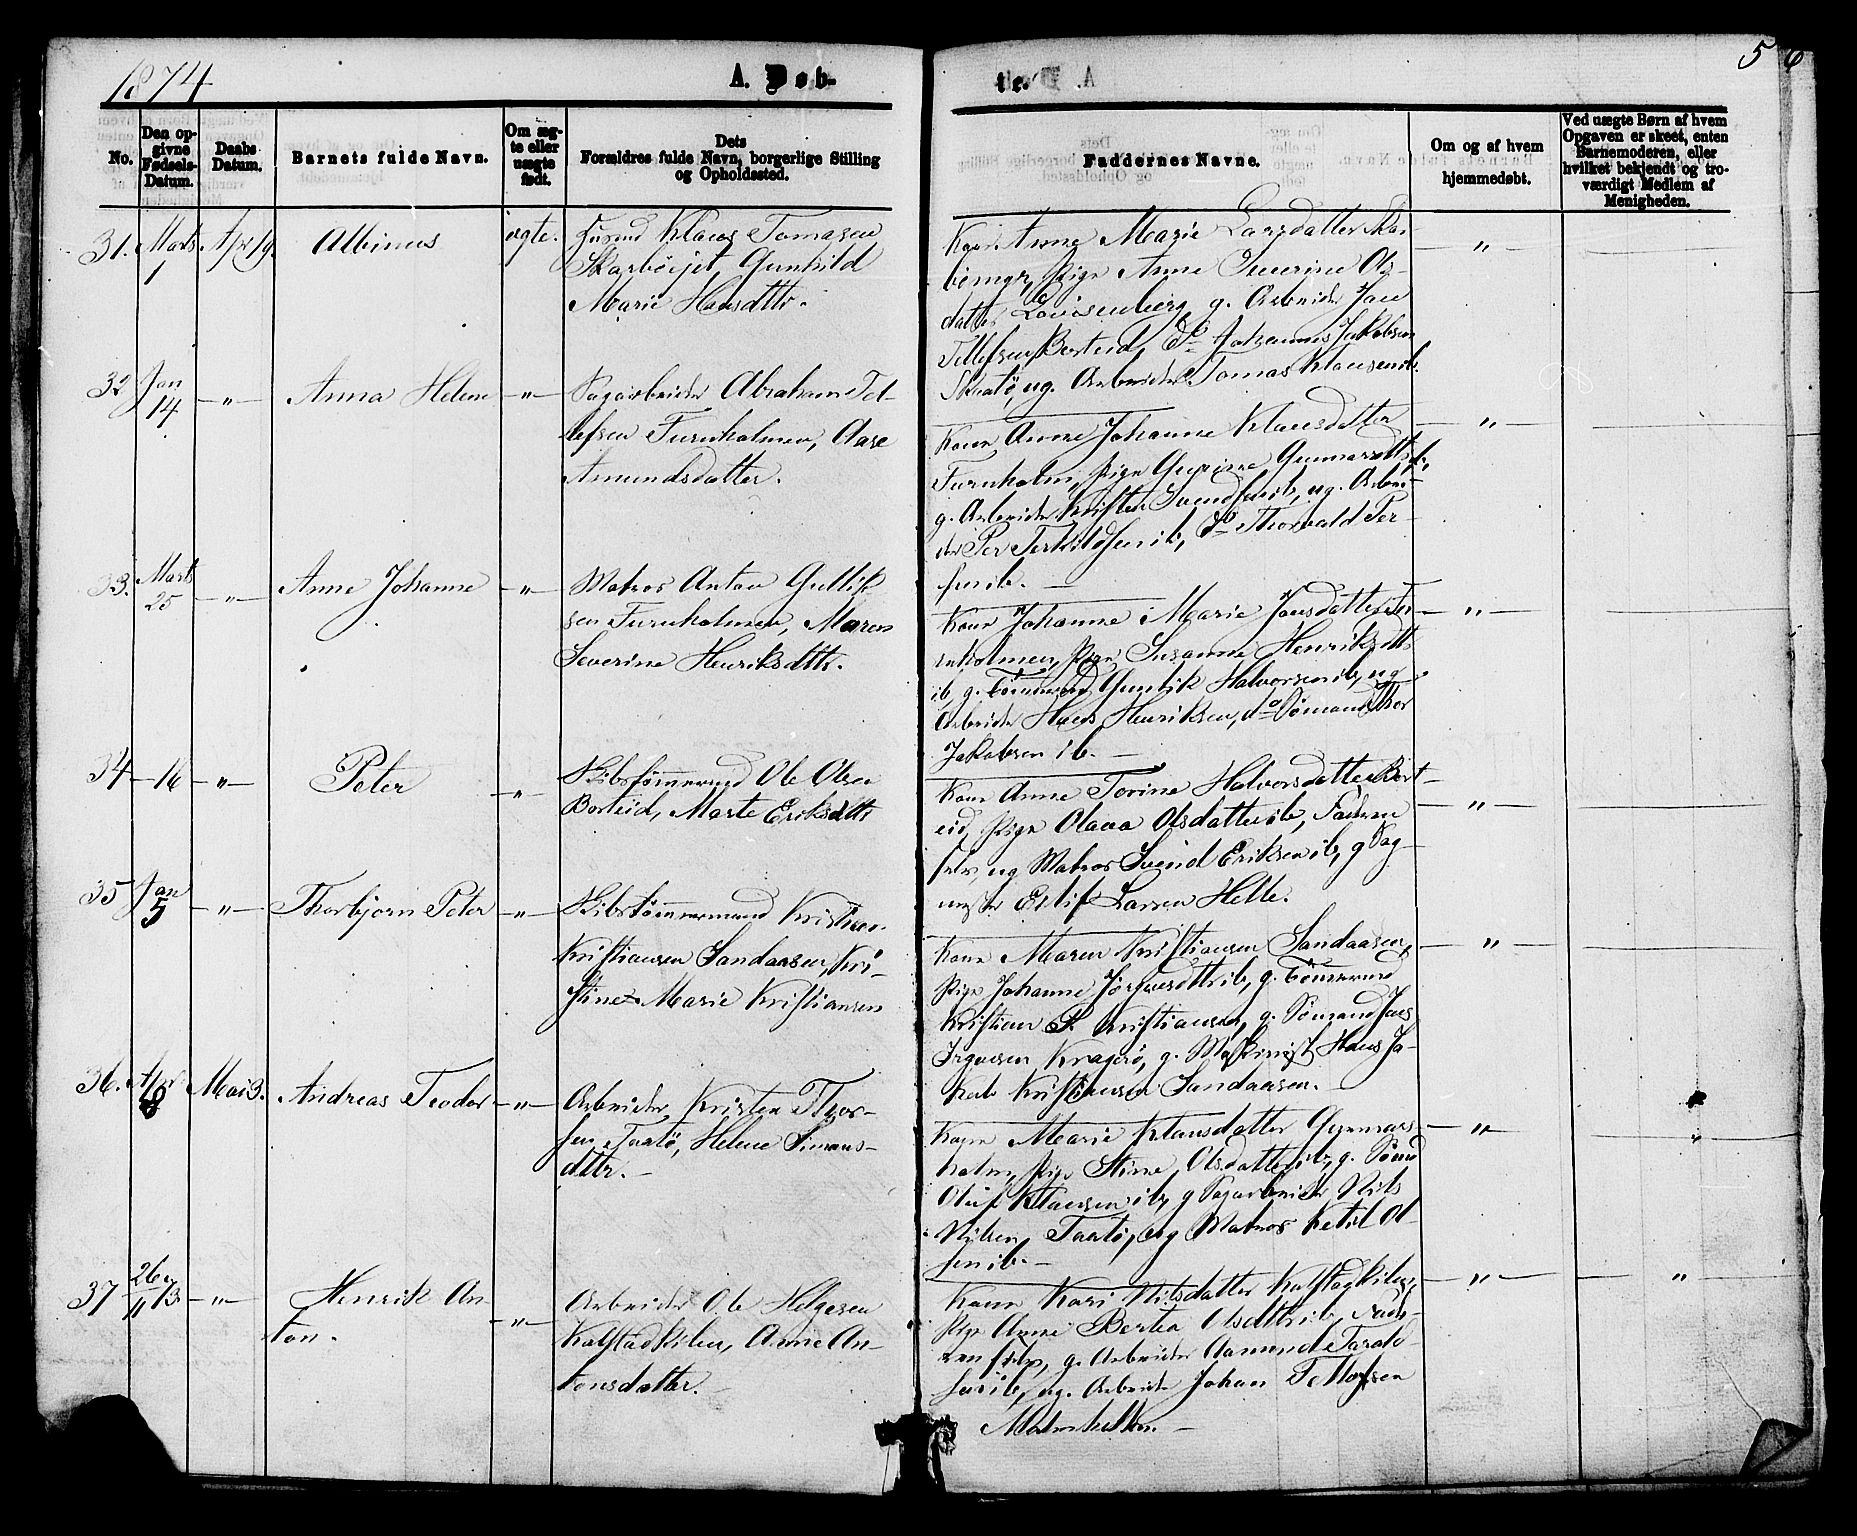 1874
A. Døb-
te.
5
6
No.
Den op-
givne
Fødsels-
Datum.
Daabs
Datum.
Barnets fulde Navn.
Om æg-
te eller
uægte
født.
Dets
Forældres fulde Navn, borgerlige Stilling
og Opholdssted.
Faddernes Navne.
Om og af hvem
hjemmedøbt.
Ved uægte Børn af hvem
Opgaven er skeet, enten
Barnemoderen, eller
hvilket bekjendt og tro-
værdigt Medlem af
Menigheden.
31. Marts 1 Apr 19. Albinus ægte.
Klaus Tomasen
Gunhild
Marie Hansdttr.
Kone Anne Marie Larsdatter
Pige Anne Severine Ols-
datter Lovisenberg, g. Arbeider Jan
Tellefsen Borteid, Do Johannes Jakobsen
Skaatø, ug. Arbeider Tomas Klausen ib.
32 Jan 14 — " — Anna Helene — " —
Sagarbeider Abraham Tel-
lefsen Furuholmen, Aase
Amundsdatter.
Kone Anne Johanne Klausdatter
Furuholm, Pige
g. Arbeider Kristen Svendsen ib, ug. Arbei-
der Per Terkildsen ib, Do Thorvald Per-
sen ib. —
33. Marts 25 — " — Anne Johanne — " —
Matros Anton Gullik-
sen Furuholmen, Maren
Severine Henriksdttr.
Kone Johanne Marie Jansdatter Fu-
ruholmen, Pige Susanne Henriksdtt
ib, g. Halvorsen ib, ug
Arbeider Hans Henriksen, do Sømand Thor
Jakobsen ib. —
34 — 16 — " — Peter — " —
Skibstømmermand Ole Olsen
Borteid, Marte Eriksdttr
Kone Anne Torine Halvorsdatter Bort-
eid, Pige Olava Olsdatter ib, Faderen
selv, ug Matros Svend Eriksen ib, g Sag-
mester Eilif Larsen Helle.
35 Jan 5 — " — Thorbjørn Peter — " —
Skibstømmermand Kristian
Kristiansen Sandaasen, Kri-
stine Marie Kristiansen
Kone Maren Kristiansen Sandaasen,
Pige Johanne ib, g. Tømmermd
Kristian S. Kristiansen, g. Sømand Jens
Kragerø, g. Maskinist Hans Ja-
kob Kristiansen Sandaasen.
36. Apr 8 Mai 3. Andreas Teodor — " —
Arbeider Kristen Thor-
sen, Taatø, Helene Simons-
dttr. —
Kone Marie Klausdatter Gunnars-
holm, Pige Stine Olsdatter ib, g. Sømd
Oluf Klausen ib, g Sagarbeider Nils
Nilsen, Taatø, og Matros Ketil Ol-
sen ib. —
37 26/11 73 — " — Henrik An-
ton. — " —
Arbeider Ole Helgesen
Kalstadkilen, Anne An-
tonsdatter. —
Kone Kari Nilsdatter Kalstadkilen,
Pige Anne Bertea Olsdttr ib, Fade-
ren selv, g. Arbeider Aamund Tarald-
sen ib, ug. Arbeider Johan Tellefsen